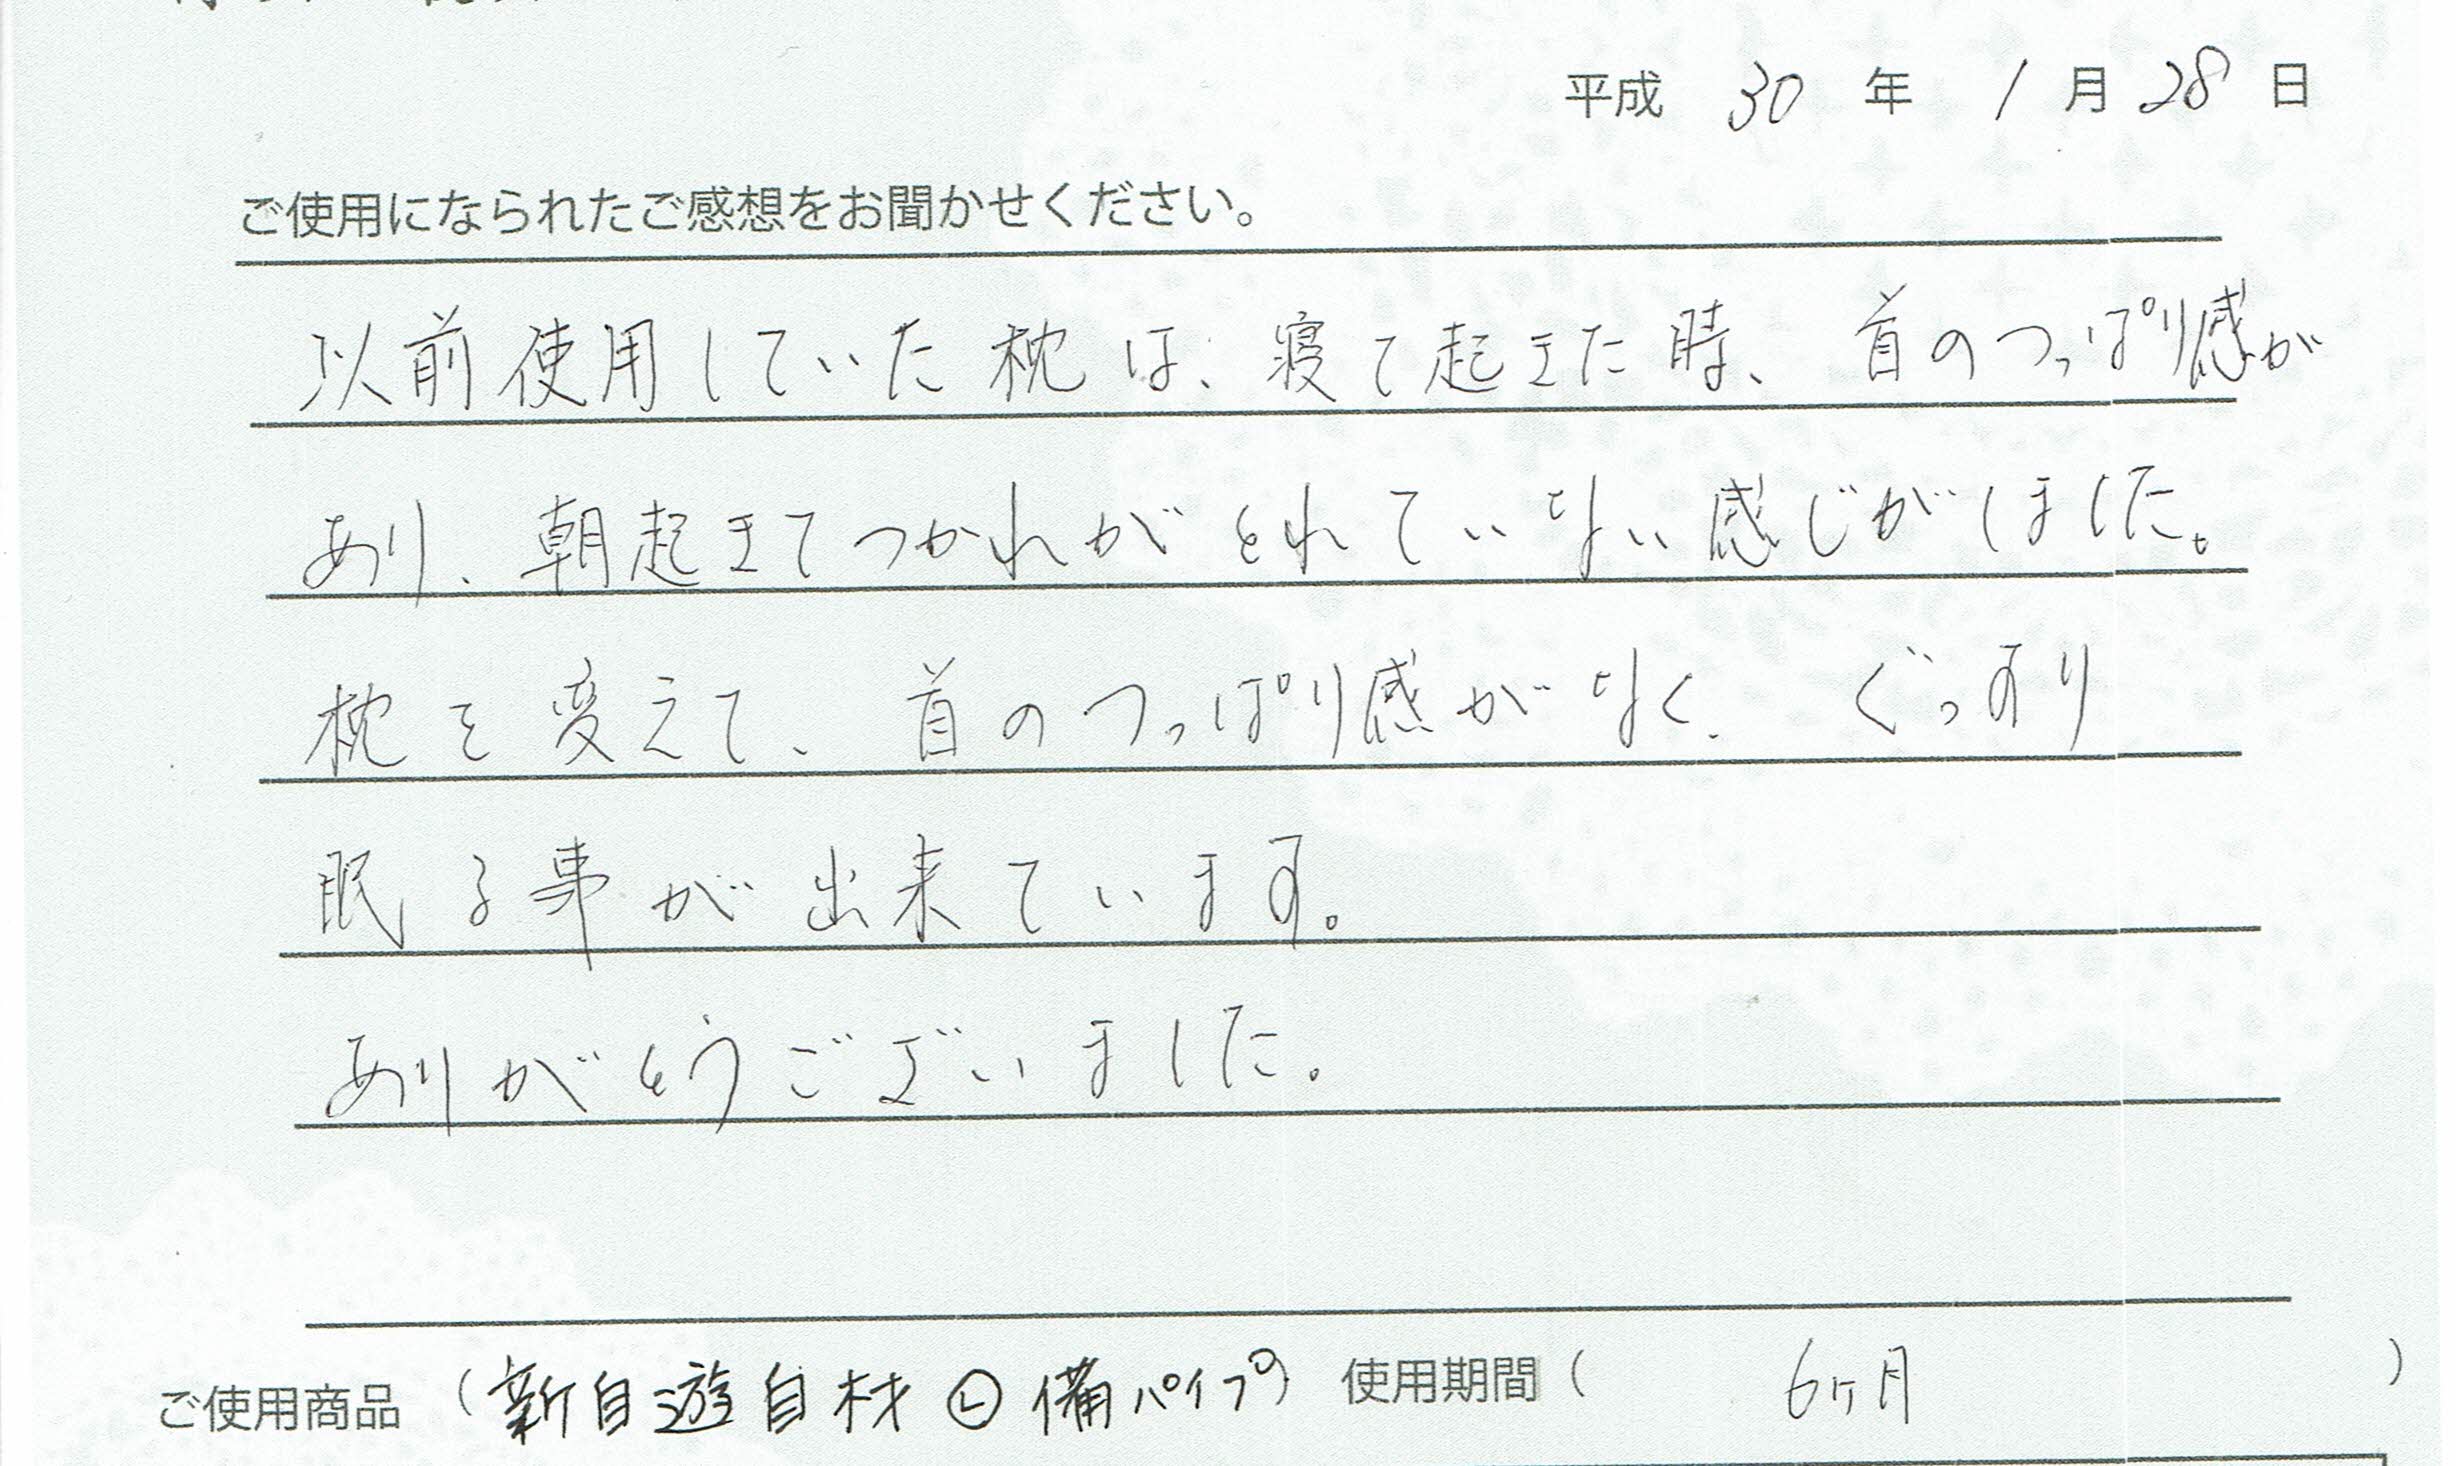 平成 30 年 1 月 28 日
ご使用になられたご感想をお聞かせください。
以前使用していた枕は、寝て起きた時、首のつっぱり感が
あり、朝起きてつかれがとれていない感じがしました。
枕を変えて、首のつっぱり感がなく、ぐっすり
眠る事が出来ています。
ありがとうございました。
ご使用商品 (新自遊自材 Ⓛ 備パイプ) 使用期間 ( 6ヶ月 )